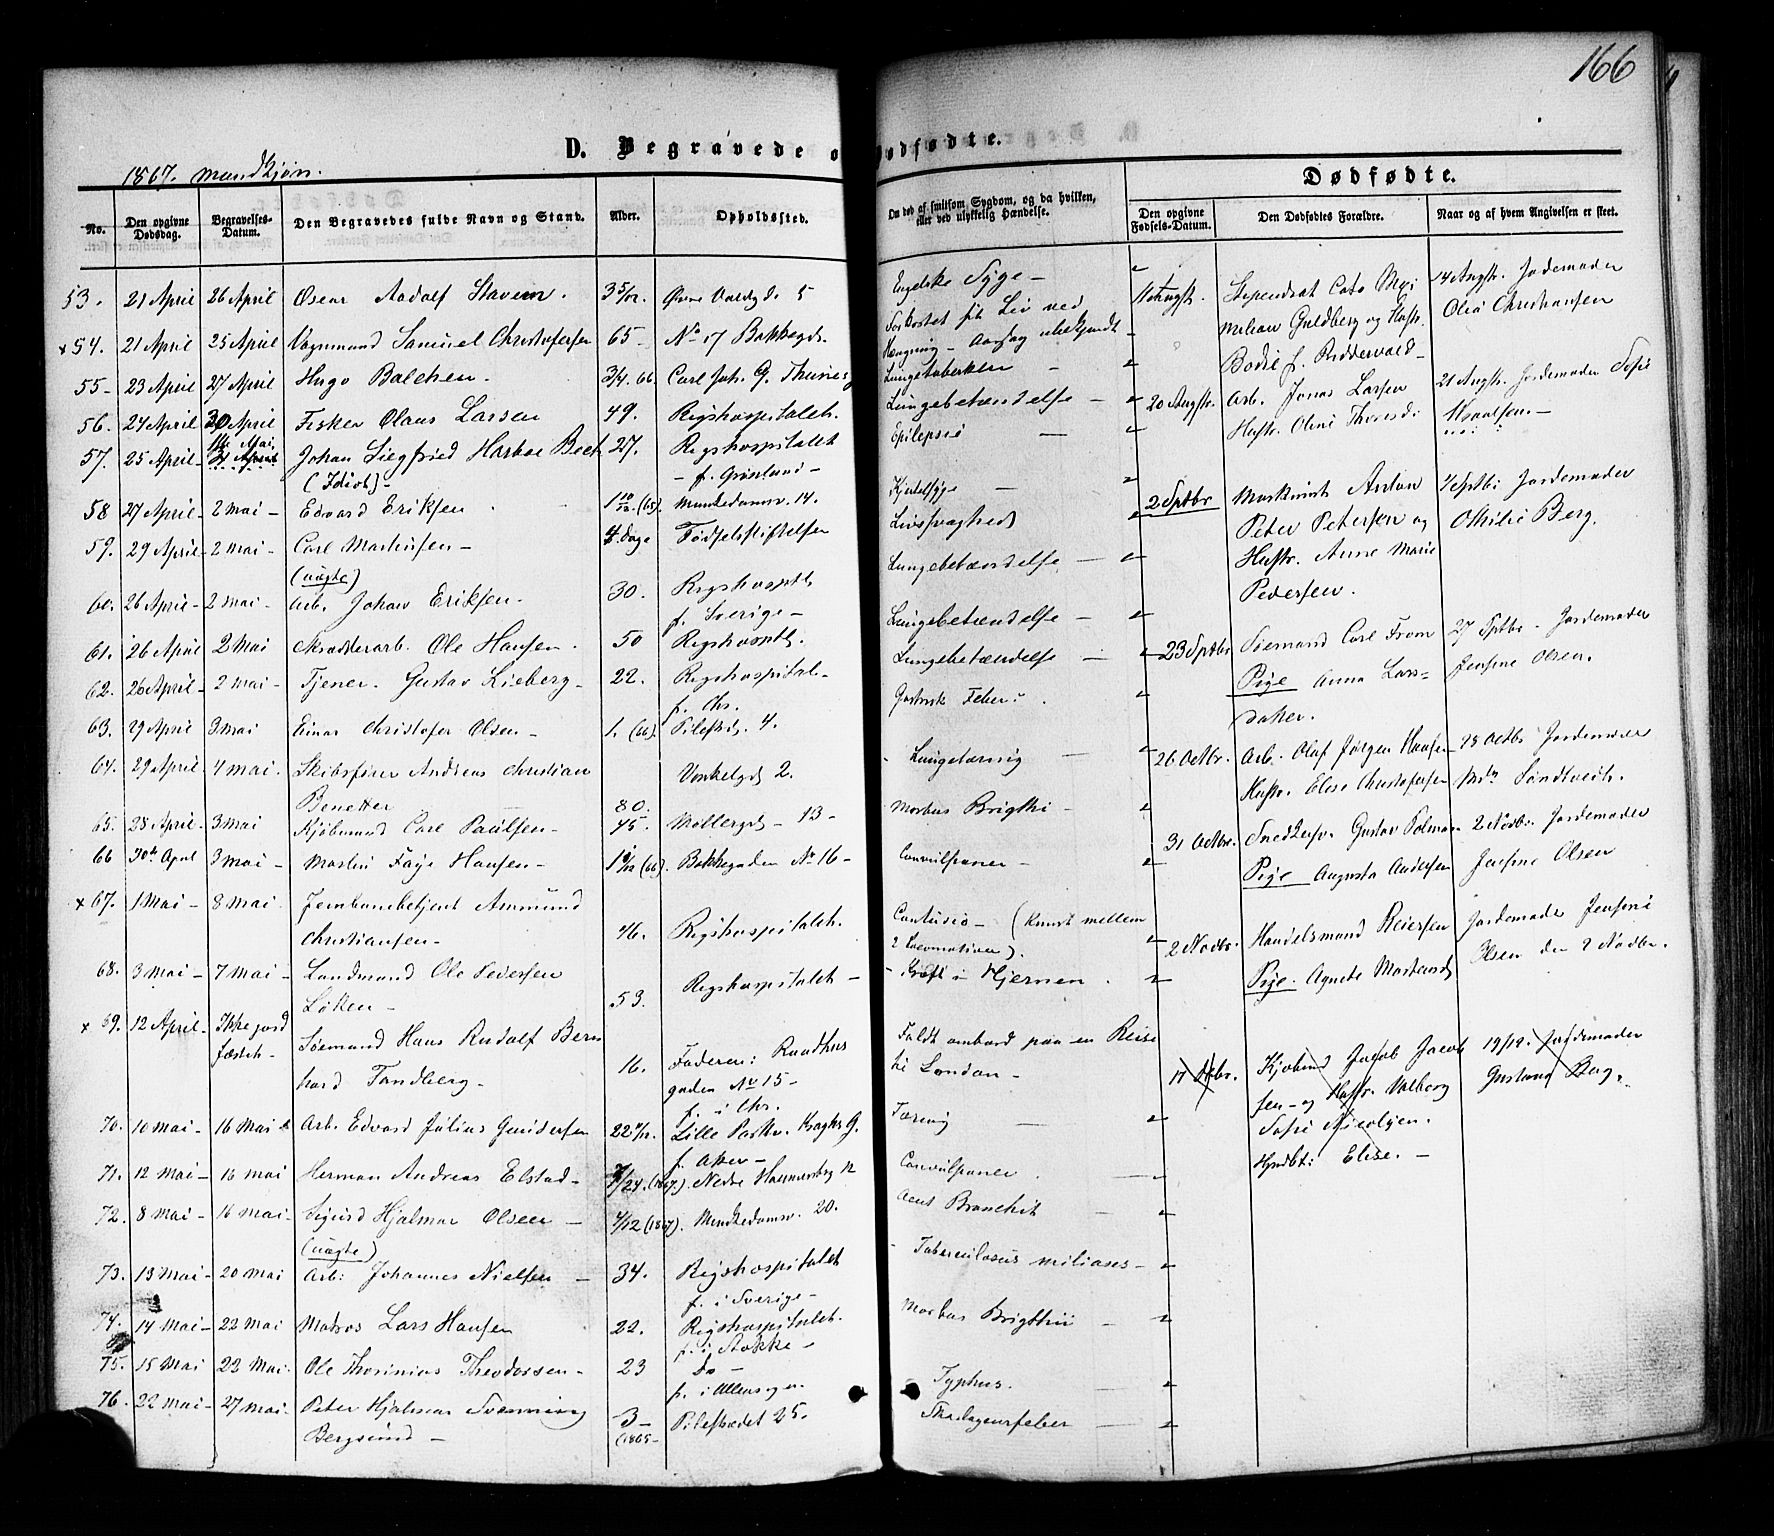 166
D. Begravede o
Dødfødte.
1867. Mandkjøn.
Dødfødte.
No.
Den opgivne Dødsdag.
Begravelses-Datum.
Den Begravedes fulde Navn og Stand.
Alder.
Opholdssted.
Om død af smitsom Sygdom, og da hvilken, eller ved ulykkelig Hændelse.
Den opgivne Fødsels-Datum.
Den Dødfødtes Forældre.
Naar og af hvem Angivelsen er skeet.
53. 21 April 26 April Oscar Aadolf Stavem. 3 5/12. Øvre Voldgd. 5 Engelske Syge -
x 54. 21 April 25 April Vognmand Samuel Christofersen 65 - No 17 Bakkegd. Forkortet sit Liv ved
Hængning - Aarsag ubekjendt
55 - 23 April 27 April Hugo Balchen. 3/4. 66. Carl Joh. G. Lungetuberkler
56. 24 April 30 April Fisker Olaus Larsen 49. Rigshospitalet. Lungebetændelse -
57. 25 April - 31 April Johan Siegfried Harboe Beck 27. Rigshospitalet Epilepsie
(Idiot) - f. Grønland -
58 27 April - 2 Mai - Edvard Eriksen 1 10/12 (65) Munkedamsv. 14. Kjertelsyge
59. 29 April - 2 Mai - Carl Mathisen - 4 Dage Fødselsstiftelsen Livssvaghed
(uægte)
60. 26 April - 2 Mai - Arb. Johan Eriksen - 30. Rigshosptl. Lungebetændelse
f. Sverige -
61. 26 April 2 Mai Skrædderarb. Ole Hansen. 50 Rigshosptl. Lungebetændelse -
62. 26 April - 2 Mai - Tjener. Gustav Lieberg - 22. Rigshospitalet - Lungebetændelse
f. Chr.
63. 29 April 3 Mai Einar Christofer Olsen - 1. (66). Pilestrd. 4. Gastrisk Feber.
64. 29 April - 4 Mai. Skibsfører Andreas Christian Vinkelgd 2. Lungetæring
Benetter 80.
65. 28 April - 3 Mai Kjøbmand Carl Paulsen - 45. Møllergd - 13 - Morbus Brigthi -
66 30te April 3 Mai - Martin Faye Hansen - 1 (66). Bakkegaden No 16 - Convulsioner -
x 67. 1 Mai - 8 Mai. Jernbanebetjent Ammund
Christiansen - 46. Rigshospitalet. Contusio - (Knust mellem
2 Locomotiver).
68. 3 Mai - 7 Mai - Landmand Ole Pedersen Rigshospitalet - Kræft i Hjernen
Løken - 53.
x 69. 12 April - Ikke jord Sømand Hans Rudolf Bern
fæstet. hard Tandberg - 16. Faderen: Raadhus
gaden No 15 - Faldt ombord paa en Reise
f. i Chr. til London -
70. 10 Mai - 16 Mai Arb. Edvard Julius Gundersen 22 Lille Kroghs G. Tæring
f. Aker -
71. 12 Mai - 16 Mai Herman Andreas Elstad - 7/24. (1867.) Nedre Hammersborg 12 Convulsioner.
72. 8 Mai - 16 Mai - Sigurd Hjalmar Olsen - 4/12 (1867). Munkedamsv. 20. Acut Bronchit
(uægte)
73. 13 Mai - 20 Mai Arb: Johannes Nielsen - 34. Rigshospitalet Tuberculosus miliares -
f. i Sverige -
74. 14 Mai - 22 Mai Matros Lars Hansen 22. Rigshospitalet. Morbus Brigthii
f. i Stokke -
75. 15 Mai 22 Mai. Ole Thorinius Theodorsen - 23 Do - Typhus.
f. i Ullensager.
76. 22 Mai - 27 Mai - Peter Hjalmar Svenning 3 - Pilestrædet 25. Skarlagensfeber
Bergsund - (1865 -
11 Augst. Stipendiat Cato Maxi 14 Augstr. Jordemoder
milian Guldberg og Hustr. Olia Christiansen
Bodil f. Riddervold -
20 Augstr. Arb. Jonas Larsen 21 Augstr. Jordemoder Sofie
Hustr. Oline Thoresd:
2 Septbr Maskinist Anton Septbr Jordemoder
Peter Petersen og Othilie Berg.
Hustr. Anne Marie
Pedersen.
23 Septbr Sømand Carl From 27 Septbr. Jordemoder
Pige Anna Lars= Josefine Olsen.
datter.
26 Octbr. Arb. Olaf Jørgen Hansen 28 Octbr Jordemoder
Hustr. Elise Christofersen Mdm Sandtveit.
31 Octbr. Snedkersv. Gustav 2 Novbr. Jordemoder
Pige Augusta Andersen Josefine Olsen
2 Novbr. Handelsmand Reiersen Jordemoder Josefine
Pige. Agnete Mortensd Olsen den 2 Novbr.
11 Kjøbmd Jacob Jacob 19/12. Jordemoder
sen - og Hustr. Valborg Gustava Bog.
Sofie Nicolysen.
Elise. -